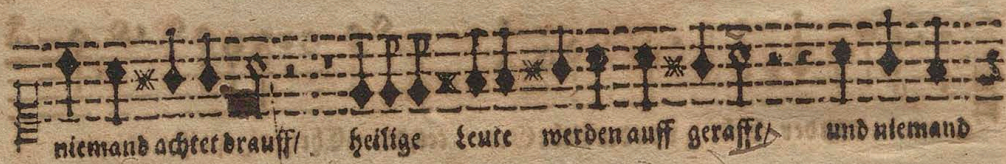 niemand achtet drauff/ heilige Leute werden auff gerafft/ und niemand